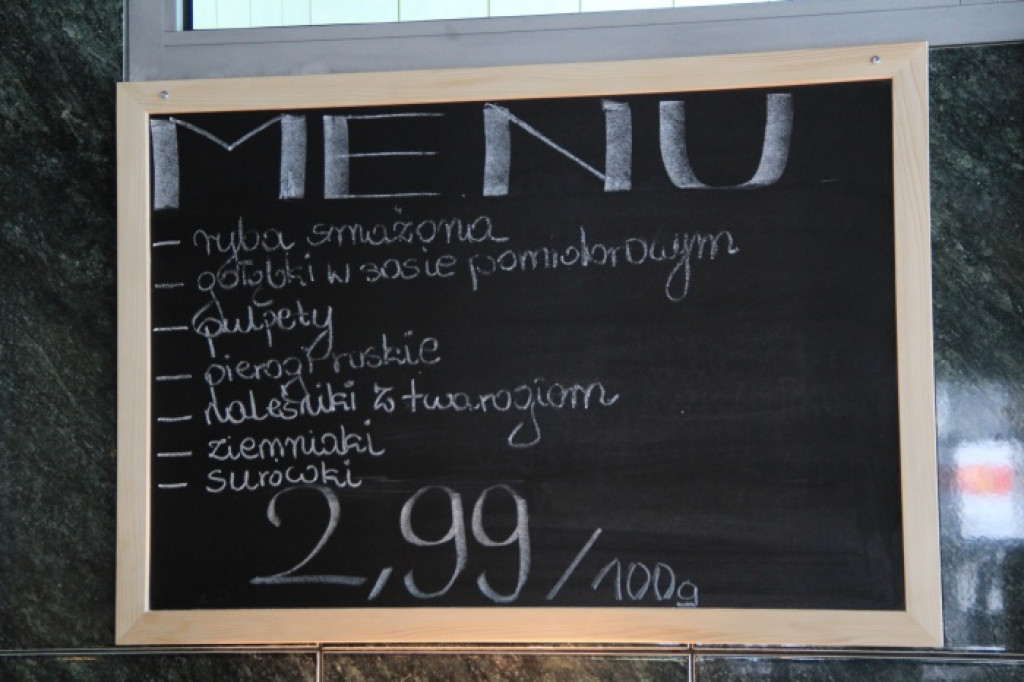 MENU
- ryba smażona
- gołąbki w sosie pomidorowym
- pulpety
- pierogi ruskie
- naleśniki z twarogiem
- ziemniaki
- surówki
2,99/100g